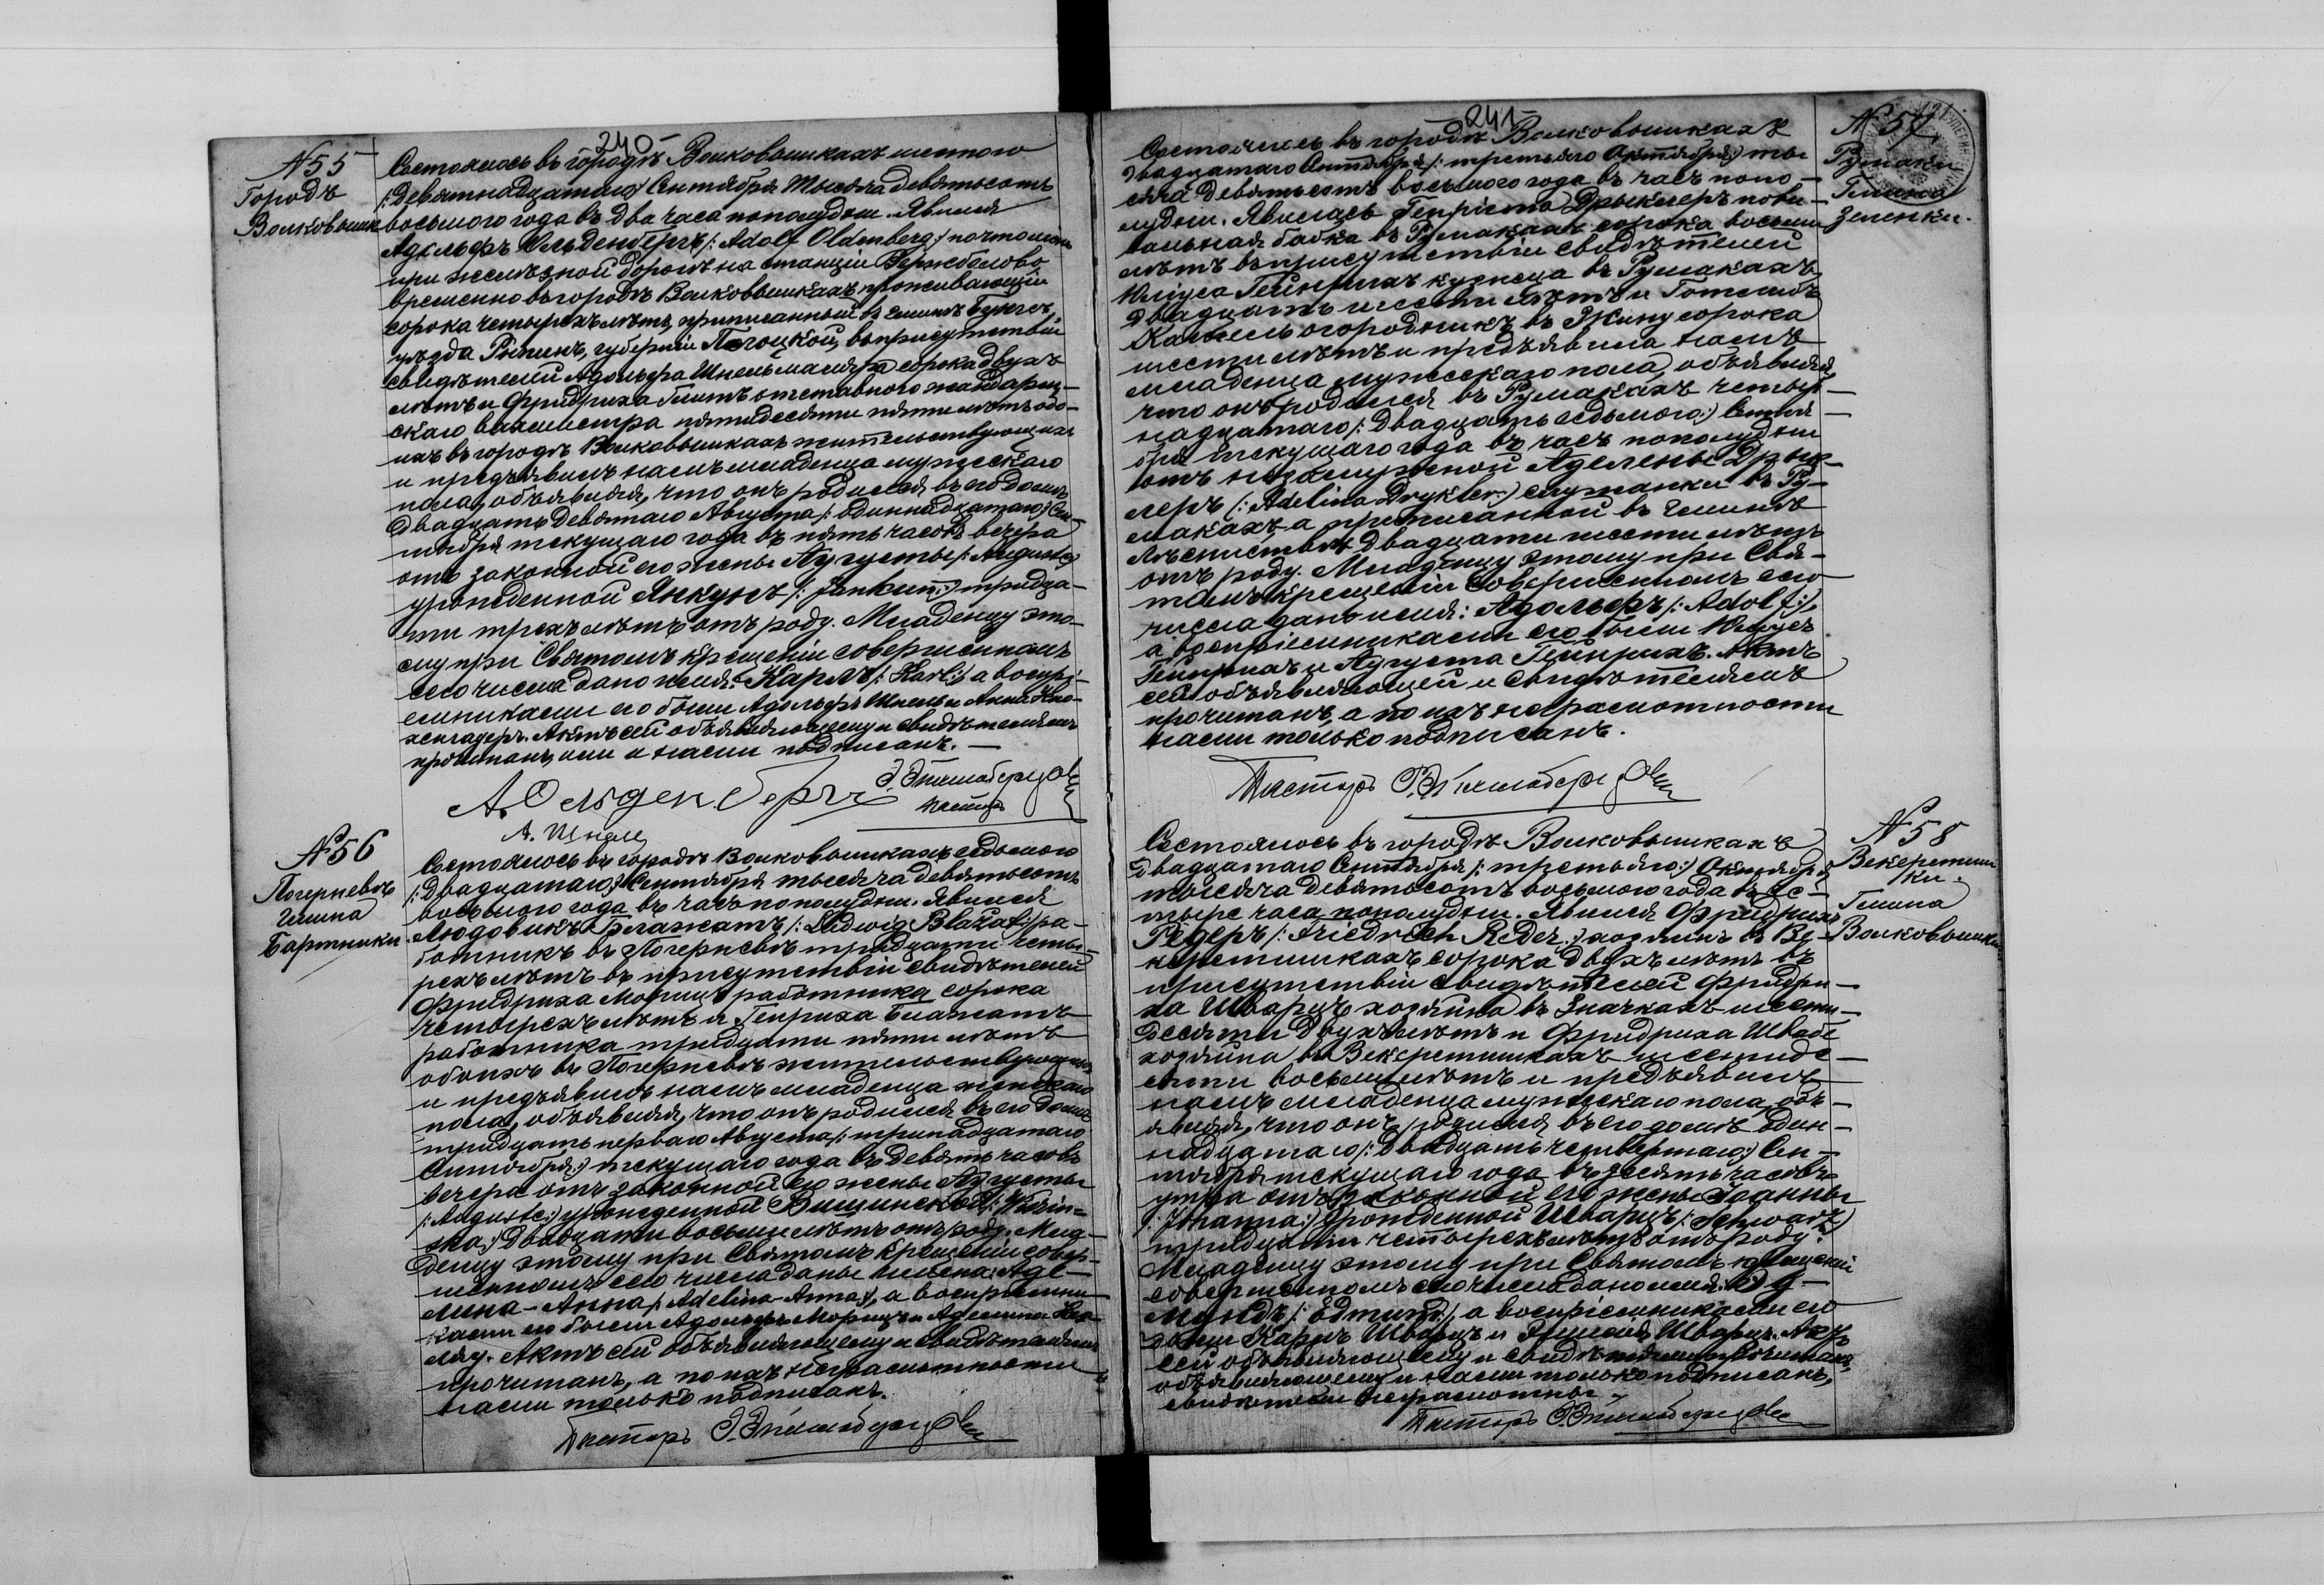 240
№ 55
Городъ
Волковышки
Состоялось въ городѣ Волковышкахъ шестого
/:Девятнадцатаго:/ Сентября тысяча девятьсотъ
восьмого года въ два часа пополудни. Явился
Адольфъ Ольденбергъ /: Adolf Oldenberg :/ почтоліонъ
при желѣзной дорогѣ на станціи Вержболово
временно въ городѣ Волковышкахъ проживающій
сорока четырехъ лѣтъ, приписанный въ гминѣ
уѣзда Рыпинъ, губерніи Плоцкой, въ присутствіи
свидѣтелей Адольфа Шнель сорока двухъ
лѣтъ и Фридриха отставного жандарм-
скаго вахмистра пятидесяти пяти лѣтъ обо-
ихъ въ городѣ Волковышкахъ жительствующихъ
и предъявилъ намъ младенца мужескаго
пола, объявляя, что онъ родился въ его домѣ
двадцать девятаго Августа /: одиннадцатаго :/ Сен-
тября текущаго года въ пять часовъ вечера
отъ законной его жены Аугусты /: Auguste :/
урожденной Янкунъ /: Jankun :/ тридца-
ти трехъ лѣтъ отъ роду. Младенцу это-
му при Святомъ крещеніи совершенномъ
сего числа дано имя: Карлъ /: Karl :/ а воспрі-
емниками его были Адольфъ Шнель и Анна
Актъ сей объявляющему и свидѣтелямъ
прочитанъ, ими и нами подписанъ. —
А. Ольденбергъ
пасторъ
А. Шнель
№ 56
Погерневъ
Гмина
Бартники
Состоялось въ городѣ Волковышкахъ седьмого
/: Двадцатаго :/ Сентября тысяча девятьсотъ
восьмого года въ часъ пополудни. Явился
Людовикъ Блажатъ /: Ludwig Blažat :/ ра-
ботникъ въ Погерневѣ тридцати четы-
рехъ лѣтъ въ присутствіи свидѣтелей
Фридриха Морицъ работника сорока
четырехъ лѣтъ и Генриха Блажатъ
работника тридцати пяти лѣтъ
обоихъ въ Погерневѣ жительствующихъ
и предъявилъ намъ младенца женскаго
пола, объявляя, что онъ родился въ его домѣ
тридцать перваго Августа /: тринадцатаго
Сентября :/ текущаго года въ девять часовъ
вечера отъ законной его жены Аугусты
/: Auguste :/ урожденной
двадцати восьми лѣтъ отъ роду. Мла-
денцу этому при Святомъ крещеніи совер-
шенномъ сего числа даны имена: Аде-
лина-Анна /: Adelina-Anna :/, а воспріемни-
ками его были Адольфъ Морицъ и Аделина
Актъ сей объявляющему и свидѣтелямъ
прочитанъ, а по ихъ неграмотности
нами только подписанъ.
Пасторъ
241
№ 57
Румаки
Гмина
Зеленки.
Состоялось въ городѣ Волковышкахъ
двадцатаго Сентября /: третьяго Октября :/ ты-
сяча девятьсотъ восьмого года въ часъ попо-
лудни. Явилась Генріетта Дрыклеръ пови-
вальная бабка въ Румакахъ сорока восьми
лѣтъ въ присутствіи свидѣтелей
Юліуса Гейнрихъ кузнеца въ Румакахъ
двадцати шести лѣтъ и Готлибъ
огородникъ въ сорока
шести лѣтъ и предъявила намъ
младенца мужескаго пола, объявляя,
что онъ родился въ Румакахъ четыр-
надцатаго /: Двадцать седьмого :/ Сентя-
бря текущаго года въ часъ пополудни
отъ незамужней Аделены Дрык-
леръ /: Adelina Drykler :/ служанки въ Ру-
макахъ, а приписанной въ гминѣ
двадцати шести лѣтъ
отъ роду. Младенцу этому при Свя-
томъ крещеніи совершенномъ сего
числа дано имя: Адольфъ /: Adolf :/,
а воспріемниками его были Юліусъ
Гейнрихъ и Аугуста Гейнрихъ. Актъ
сей объявляющей и свидѣтелямъ
прочитанъ, а по ихъ неграмотности
нами только подписанъ.
Пасторъ
№ 58
Векеротиш-
ки.
Гмина
Волковышки
Состоялось въ городѣ Волковышкахъ
двадцатаго Сентября /: третьяго :/ Октября
тысяча девятьсотъ восьмого года въ че-
тыре часа пополудни. Явился Фридрихъ
Редеръ /: Friedrich Reder :/ хозяинъ въ Ве-
керотишкахъ сорока двухъ лѣтъ въ
присутствіи свидѣтелей Фридри-
ха Шварцъ хозяина въ шести-
десяти двухъ лѣтъ и Фридриха Швабе
хозяина въ Векеротишкахъ шестиде-
сяти восьми лѣтъ и предъявилъ
намъ младенца мужескаго пола, объ-
являя, что онъ родился въ его домѣ один-
надцатаго /: двадцать четвертаго :/ Сен-
тября текущаго года въ десять часовъ
утра отъ законной его жены Іоанны
/: Johanna :/ урожденной Шварцъ /: Schwarz :/
тридцати четырехъ лѣтъ отъ роду.
Младенцу этому при Святомъ крещеніи
совершенномъ сего числа дано имя: Эд-
мундъ /: Edmund :/, а воспріемниками его
были Карлъ Шварцъ и Эмилія Шварцъ. Актъ
сей объявляющему и свидѣтелямъ прочитанъ,
объявляющему и нами только подписанъ,
свидѣтели неграмотны.
Пасторъ